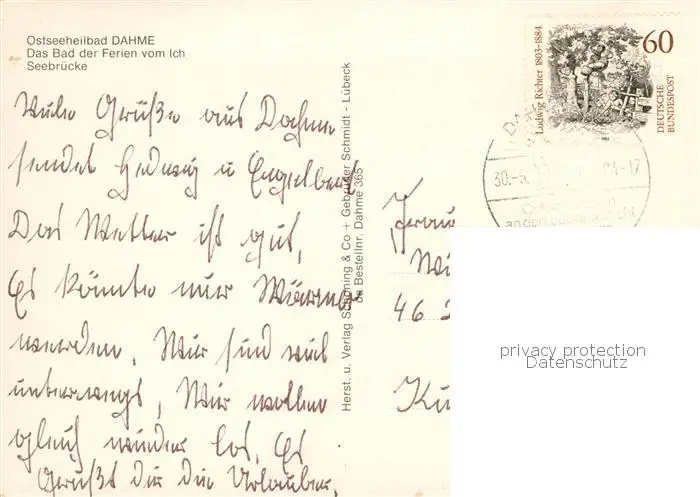 Ostseeheilbad DAHME
Das Bad der Ferien vom Ich
Seebrücke
Viele Grüße aus Dahme
sendet Hedwig u Engelbert
Das Wetter ist gut,
Es könnte nur Wärmer
werden. Wir sind viel
unterwegs, Wir wollen
gleich wieder los. Es
Grüßt dir die Urlauber.
Herst. u. Verlag Schöning & Co + Gebrüder Schmidt - Lübeck
da Bestellnr. Dahme 365
Ludwig Richter 1803-1884
60
DEUTSCHE
BUNDESPOST
30.-5.
-17
Frau
46
privacy protection
Datenschutz